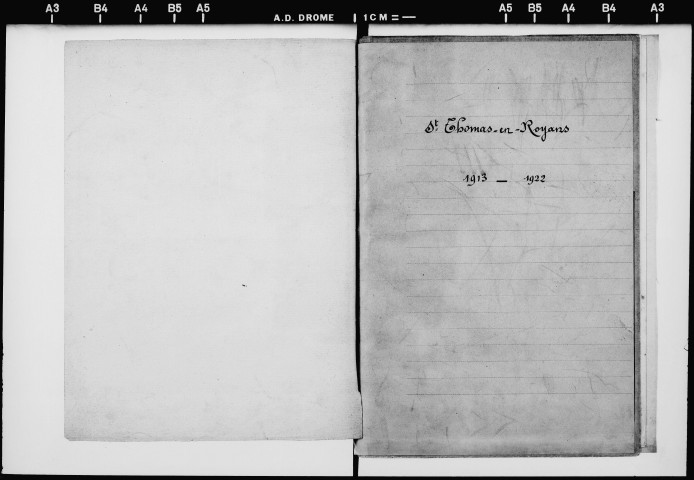 A3 B4 A4 B5 A5 A.D. DROME 1 CM = A5 B5 A4 B4 A3
St Thomas-en-Royans
1913 — 1922